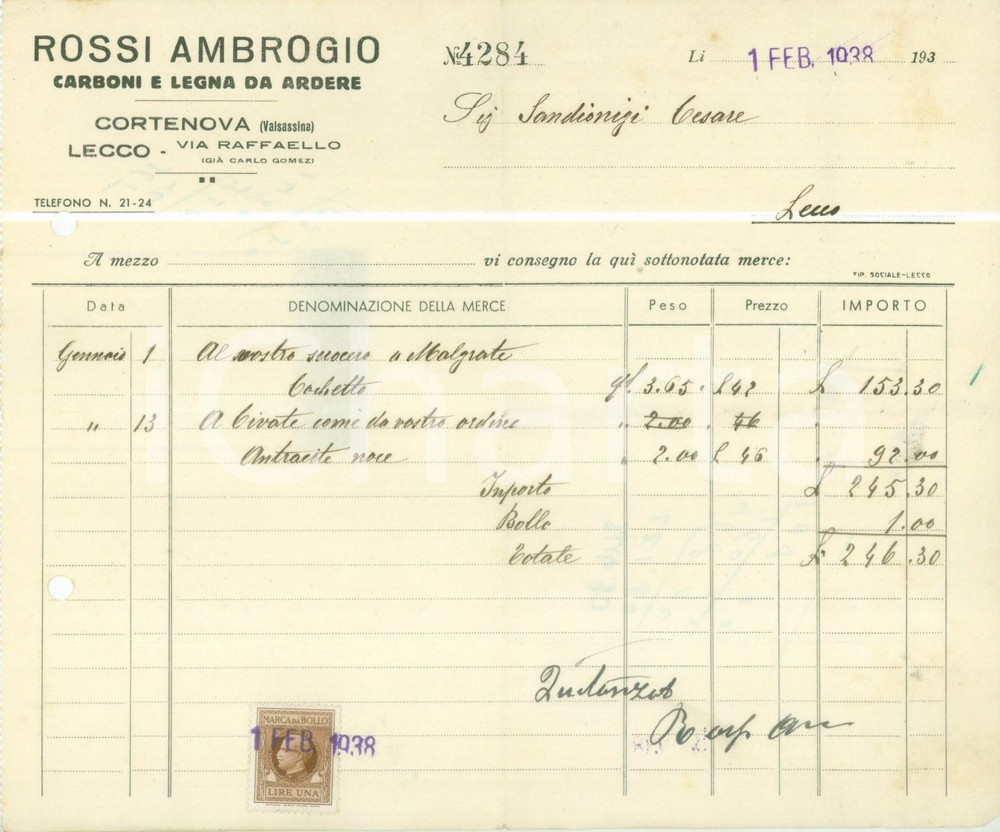 ROSSI AMBROGIO
CARBONI E LEGNA DA ARDERE
CORTENOVA (Valsassina)
LECCO - VIA RAFFAELLO
(GIÀ CARLO GOMEZ)
TELEFONO N. 21-24
No 4284
Li 1 FEB. 1938 193
Sig Sandionigi Cesare
Lecco
A mezzo vi consegno la quì sottonotata merce:
TIP. SOCIALE-LECCO
Data DENOMINAZIONE DELLA MERCE Peso Prezzo IMPORTO
Gennaio 1 Al vostro suocero a Malgrate
Cochetto ql. 3.65. L 42 L 153.30
" 13 A Civate come da vostro ordine " 2.00 . 46 "
Antracite noce " 2.00 L 46 " 92.00
Inporto L 245.30
Bollo 1.00
Totale L. 246.30
Quitanzato
MARCA DA BOLLO
1 FEB. 1938
LIRE UNA
iCharta